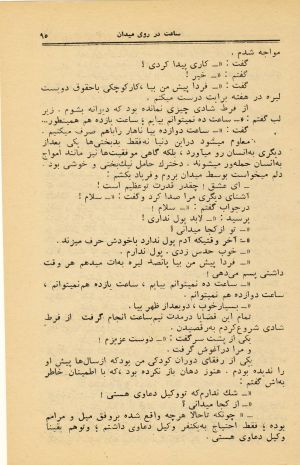 ساعت در روی میدان
۹۵
مواجه شدم .
گفت : «ـ کاری پیدا کردی !
گفتم : «ـ خیر !
گفت : «ـ فردا پیش من بیا ، کارکوچکی باحقوق دویست
لیره در هفته برایت درست میکنم
از فرط شادی چیزی نمانده بود که دیوانه بشوم . زیر
لب گفتم : «ـ ساعت ده نمیتوانم بیایم ، ساعت یازده هم همینطور...
گفت : «ـ ساعت دوازده بیا ناهار راباهم صرف میکنیم .
معلوم میشود دراین دنیا نه‌فقط بدبختی‌ها یکی بعداز
دیگری به‌انسان رو میاورد ، بلکه گاهی موفقیت‌ها نیز مانند امواج
به‌انسان حمله‌ور میشوند . دخترك حامل نیك‌بختی و خوشی بود .
دلم میخواست بوسط میدان بروم و فریاد بکشم :
ـ ای عشق ! چقدر قدرت توعظیم است !
آشنای دیگری مرا صدا کرد وگفت : «ـ سلام !
درجواب گفتم : «ـ سلام !
پرسید : «ـ لابد پول نداری !
«ـ تو ازکجا میدانی ؟
«ـ آخر وقتیکه آدم پول ندارد باخودش حرف میزند .
«ـ خوب حدس زدی . پول ندارم .
«ـ فردا پیش من بیا پانصد لیره به‌ات میدهم هر وقت
داشتی پسم می‌دهی !
«ـ ساعت ده نمیتوانم بیایم ، ساعت یازده هم‌نمیتوانم ،
ساعت دوازده هم نمیتوانم .
«ـ بسیارخوب ، دوبعداز ظهر بیا .
تمام این قضایا درمدت نیم‌ساعت انجام گرفت از فرط
شادی شروع‌کردم به‌رقصیدن .
یکی از پشت سرگفت : «ـ دوست عزیزم !
و مرا درآغوش گرفت .
یکی از رفقای دوران کودکی من بودکه ازسال‌ها پیش او
را ندیده بودم . هنوز دهان باز نکرده بود ،که با اطمینان خاطر
به‌اش گفتم :
«ـ شك ندارم‌که تووکیل دعاوی هستی !
«ـ از کجا میدانی ؟
«ـ چونکه تاحالا هرچه واقع شده بروفق میل و مرامم
بوده ؛ فقط احتیاج به‌یکنفر وکیل دعاوی داشتم ؛ وتوهم یقیناً
وکیل دعاوی هستی .